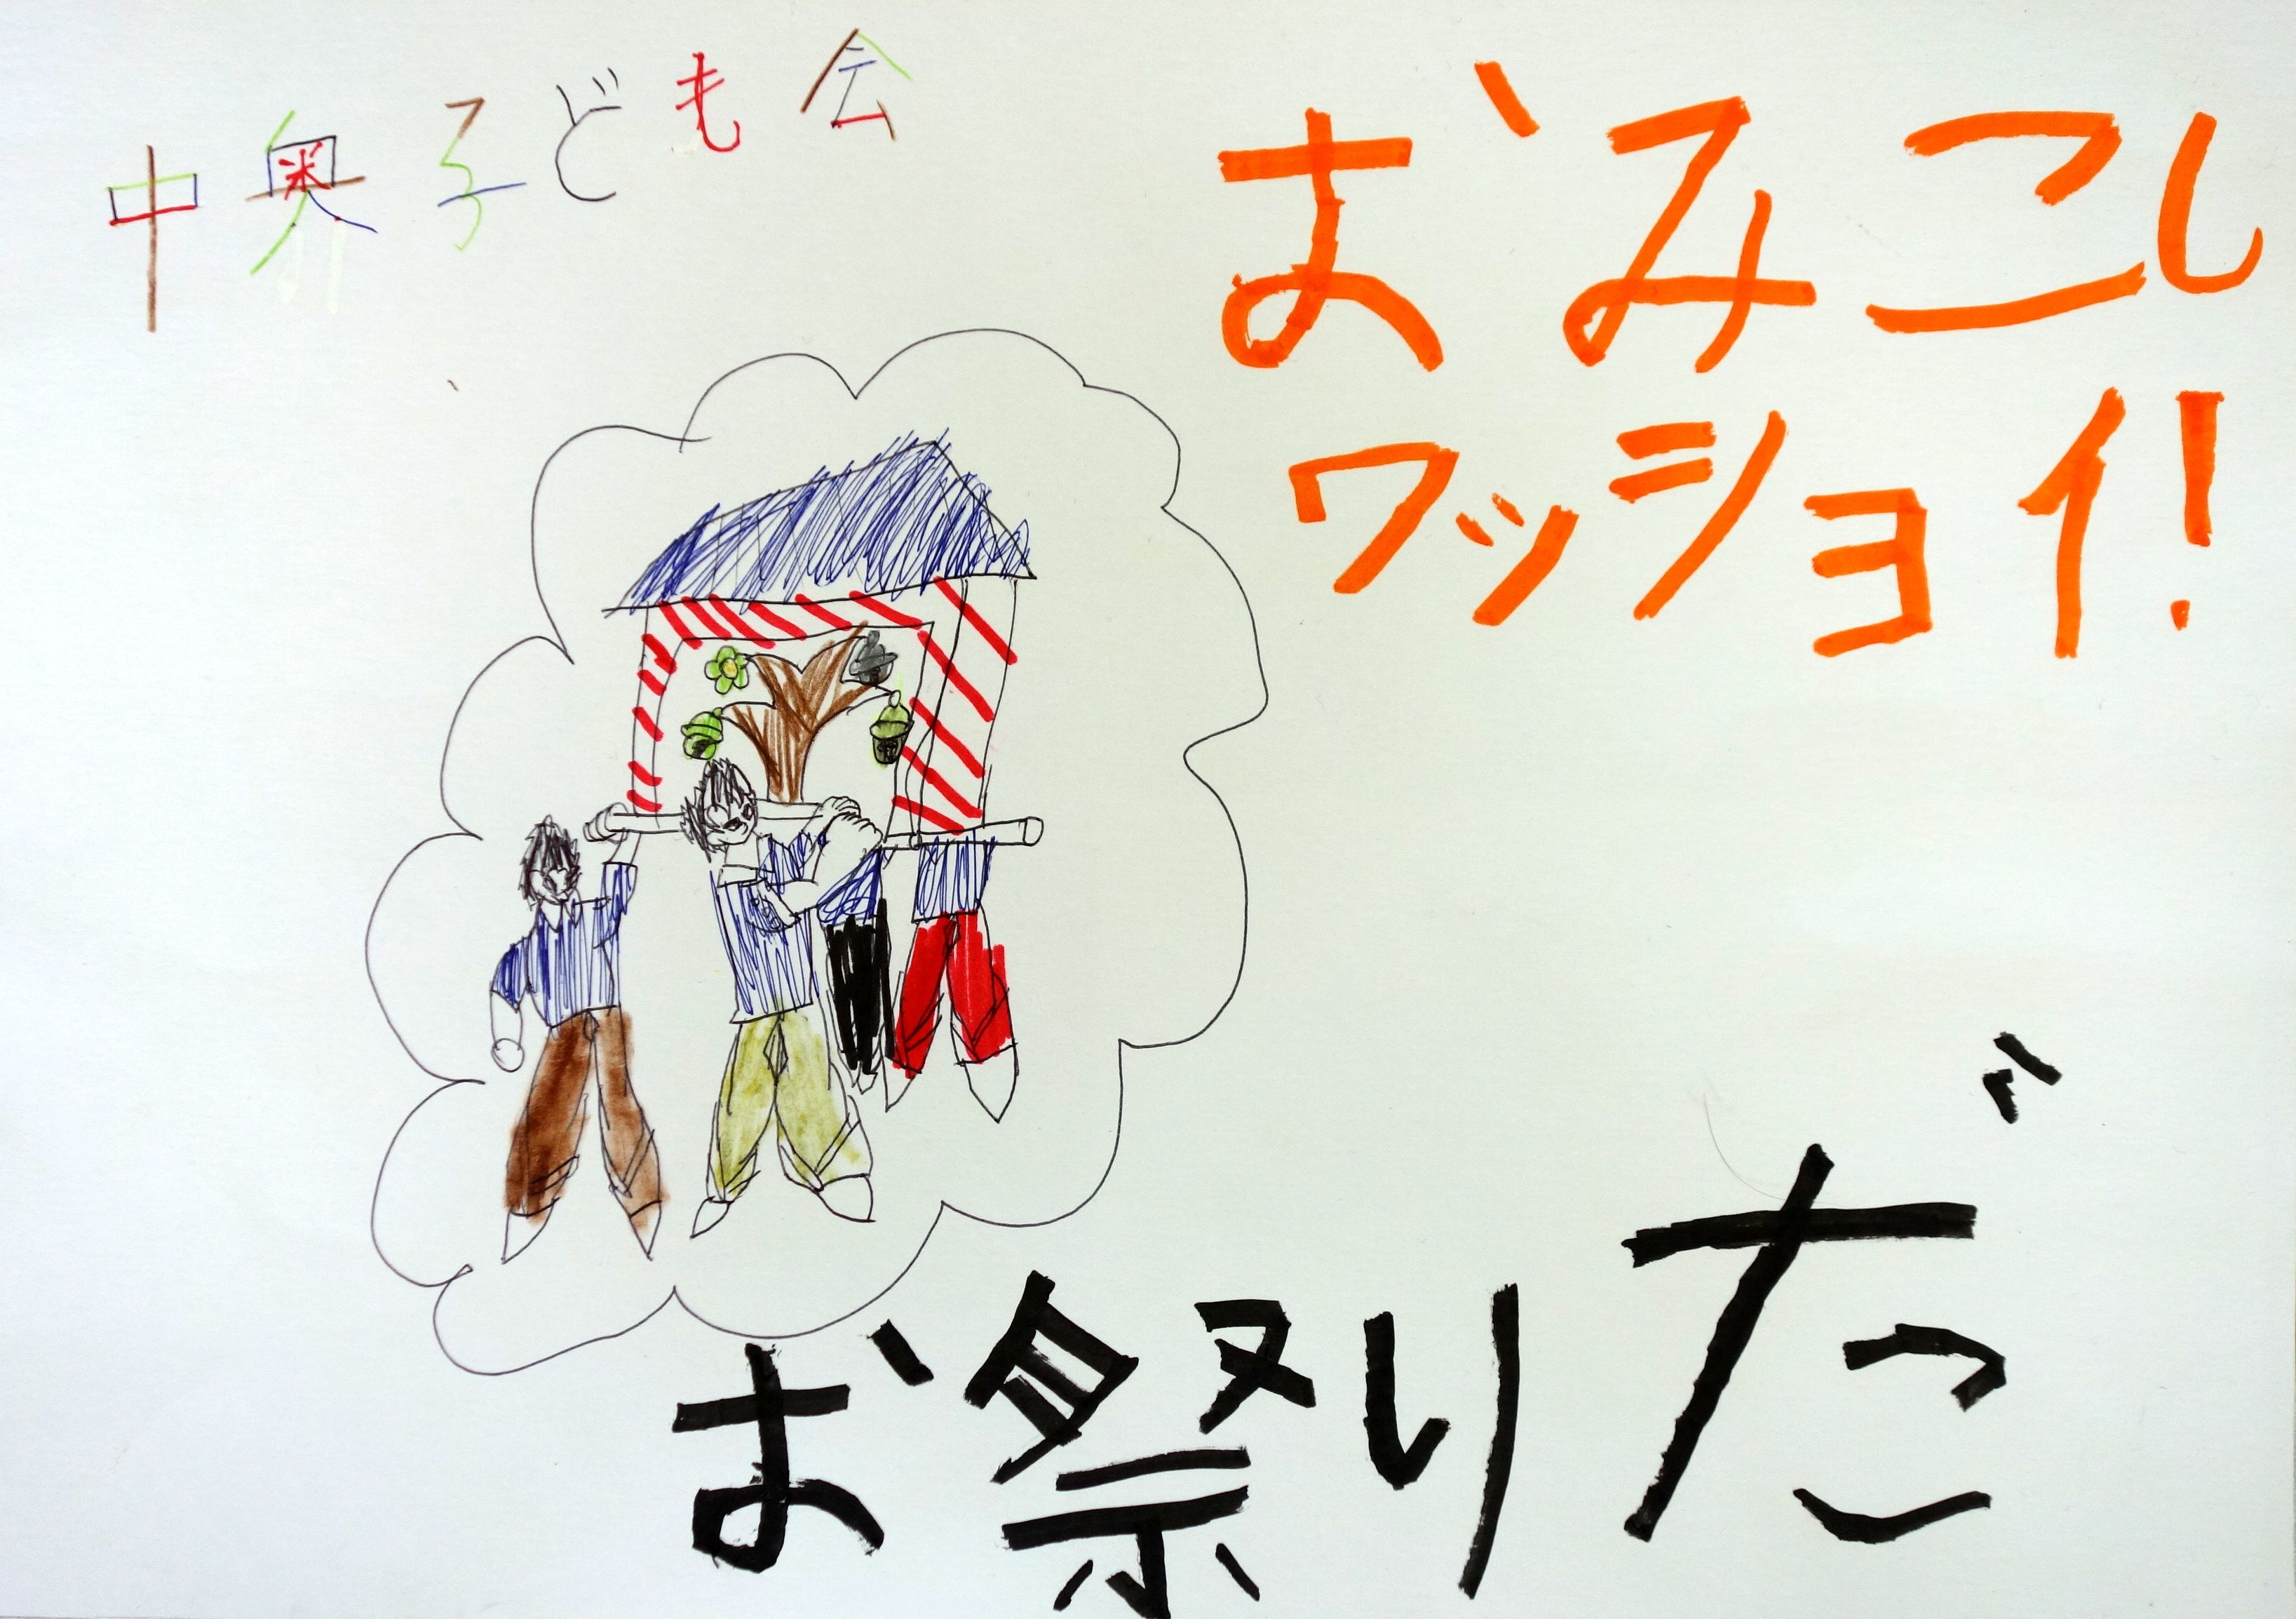 中奥子ども会
おみこし
ワッショイ!
お祭りだ